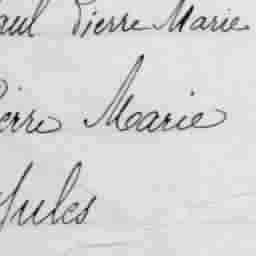 Paul Pierre Marie
Pierre Marie
Jules